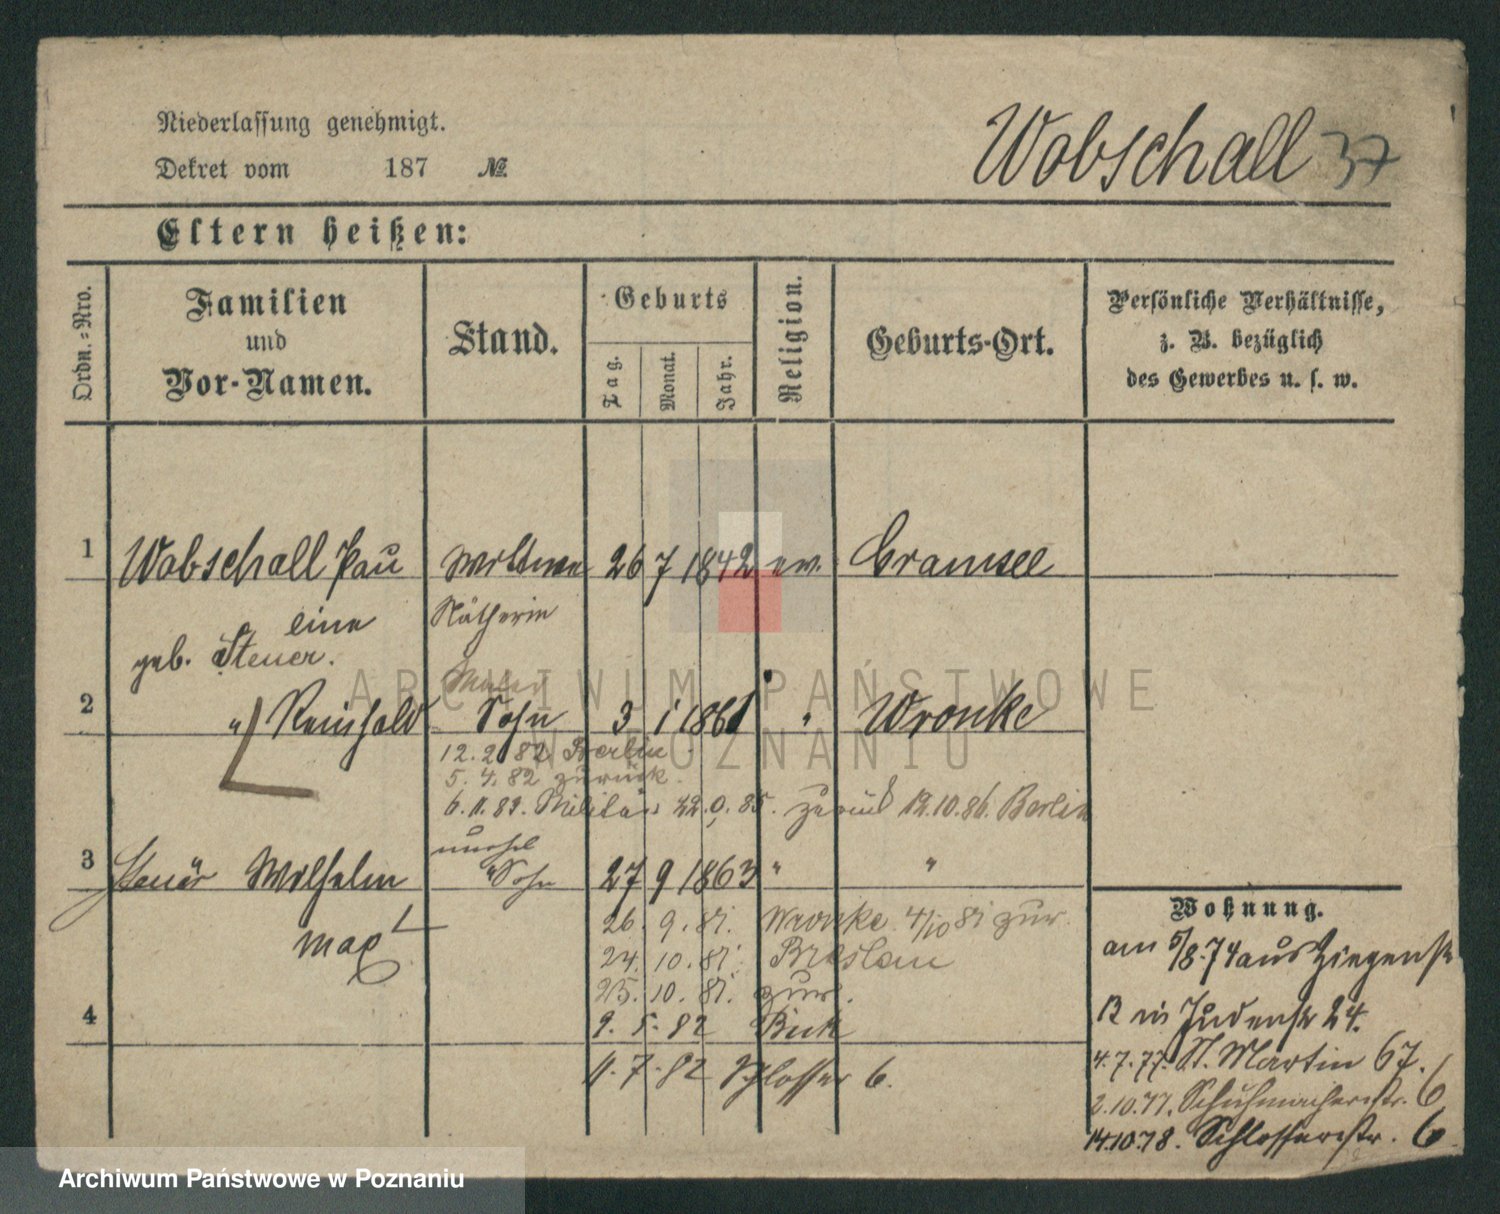 Niederlassung genehmigt.
Dekret vom 187 №
Wobschall 37
Eltern heißen:
Ordn.-Nro.
Familien
und
Vor-Namen.
Stand.
Geburts
Tag.
Monat.
Jahr.
Religion.
Geburts-Ort.
Persönliche Verhältnisse,
z. B. bezüglich
des Gewerbes u. s. w.
1 Wobschall Pau Wittwe 26 7 1842 ev. Gramsee
eine Nätherin
geb. Steuer.
Maler
2 " Reinhold Sohn 3 1 1861 " Wronke
12.2.82 Berlin
5.4.82 zurück.
6.11.83. Militär 22.9.85. zurück 12.10.86. Berlin
unehel
3 Wilhelm Sohn 27 9 1863 " "
max
26. 9. 81. Wronke 4/10 81 zur.
24. 10. 81. Breslau
25. 10. 81. zur.
4 9. 5. 82 Buk
11. 7. 82 Schlosser 6.
Wohnung.
am 5/8.74 aus Ziegenstr
13 in Judenstr 24.
4.7.77. St. Martin 67.
2.10.77. Schuhmacherstr. 6
14.10.78. Schlosserstr. 6
ARCHIWUM PAŃSTWOWE
W POZNANIU
Archiwum Państwowe w Poznaniu